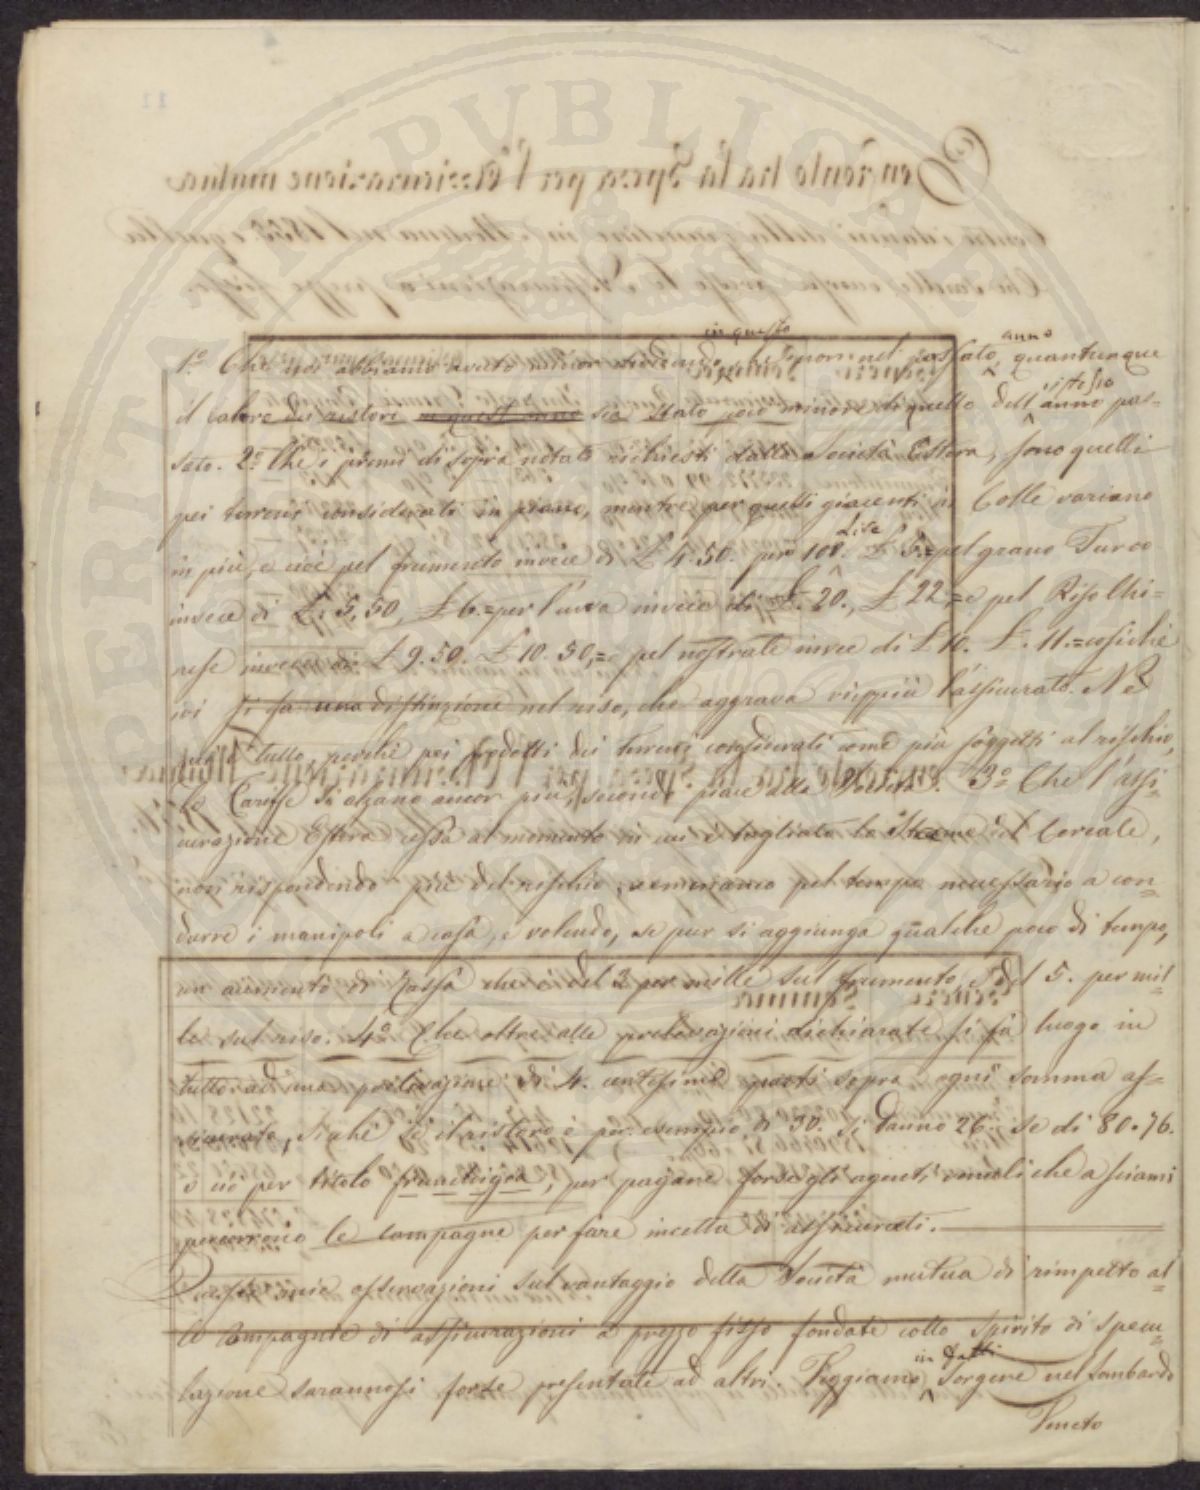 in questo anno
1.° Che noi abbiamo avuto minor dividendo, e Signori nel passato, quantunque
istesso
il valore dei ristori in quest'anno sia stato poco minore di quello dell'anno pas=
sato. 2.° Che i premi di sopra notati richiesti dalla Società Estera, sono quelli
pei terreni considerati in piano, mentre per quelli giacenti in Colle variano
Lire
in più, e cioè pel frumento invece di £ 4.50. per 100. £ 5.= pel grano Turco
invece di £. 5,50, £ 6.= per l'uva invece di £. 20., £ 22,= e pel Riso Chi=
nese invece di £ 9.50. £ 10.50,= e pel nostrale invece di £ 10. £. 11.= cosichè
ivi si fa una distinzione nel riso, che aggrava vieppiù l'assicurato. Nè
è tutto, perchè pei prodotti dei terreni considerati come più soggetti al rischio,
le Tariffe si alzano ancor più, secondo piace alla Società. 3.° Che l'assi=
curazione Estera cessa al momento in cui è tagliato lo Stame del Cereale,
non rispondendo più del rischio nemmanco pel tempo necessario a con=
durre i manipoli a casa, e volendo, se pur si aggiunga qualche poco di tempo,
un aumento di Tassa che è del 3 per mille sul frumento, e del 5. per mil=
le sul riso. 4.° Che oltre alle prelevazioni dichiarate si fà luogo in
tutto ad una prelevazione di 4. centesime parti sopra ogni somma as=
sicurata, sichè se il ristoro è per esempio di 30. si danno 26. se di 80. 76.
e ciò per titolo franchigia, per pagare forse gli agenti venali che a sciami
percorrono le campagne per fare incetta di assicurati.
Queste mie osservazioni sul vantaggio della Società mutua di rimpetto al=
le Compagnie di assicurazioni a prezzo fisso fondate collo Spirito di specu=
in fatti
lazione sarannosi forse presentate ad altri. Veggiamo Sorgere nel Lombardo
Veneto